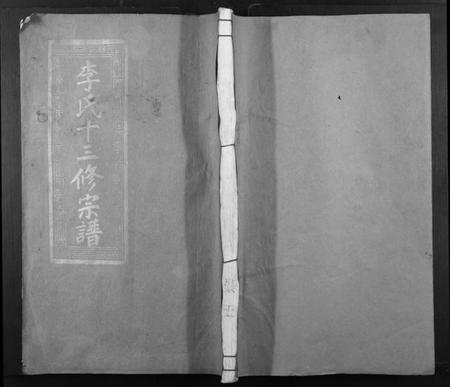 李氏十三修宗譜